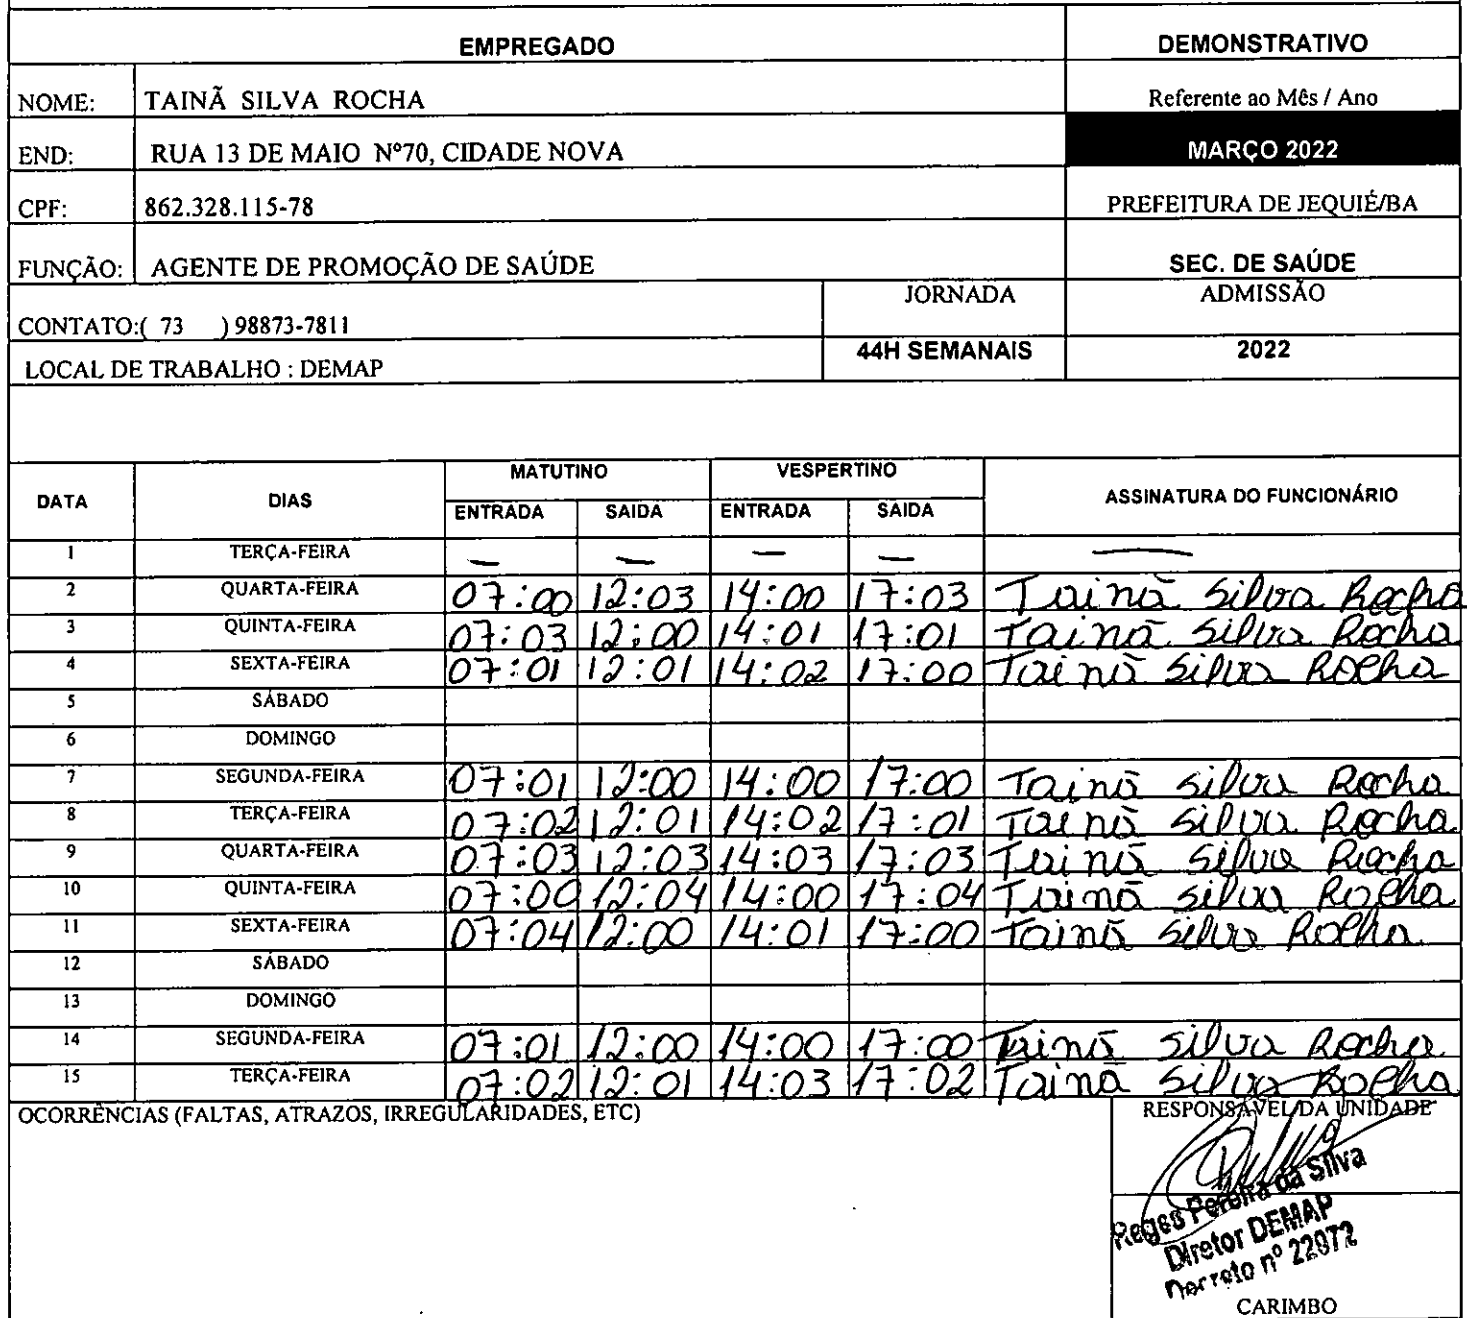 EMPREGADO DEMONSTRATIVO
NOME: TAINÃ SILVA ROCHA Referente ao Mês / Ano
END: RUA 13 DE MAIO Nº70, CIDADE NOVA MARÇO 2022
CPF: 862.328.115-78 PREFEITURA DE JEQUIÉ/BA
FUNÇÃO: AGENTE DE PROMOÇÃO DE SAÚDE SEC. DE SAÚDE
JORNADA ADMISSÃO
CONTATO:( 73 ) 98873-7811
44H SEMANAIS 2022
LOCAL DE TRABALHO : DEMAP
MATUTINO VESPERTINO
DATA DIAS ASSINATURA DO FUNCIONÁRIO
ENTRADA SAIDA ENTRADA SAIDA
1 TERÇA-FEIRA — — — — —
2 QUARTA-FEIRA 07:00 12:03 14:00 17:03 Tainã Silva Rocha
3 QUINTA-FEIRA 07:03 12:00 14:01 17:01 Tainã Silva Rocha
4 SEXTA-FEIRA 07:01 12:01 14:02 17:00 Tainã Silva Rocha
5 SÁBADO
6 DOMINGO
7 SEGUNDA-FEIRA 07:01 12:00 14:00 17:00 Tainã Silva Rocha
8 TERÇA-FEIRA 07:02 12:01 14:02 17:01 Tainã Silva Rocha
9 QUARTA-FEIRA 07:03 12:03 14:03 17:03 Tainã Silva Rocha
10 QUINTA-FEIRA 07:00 12:04 14:00 17:04 Tainã Silva Rocha
11 SEXTA-FEIRA 07:04 12:00 14:01 17:00 Tainã Silva Rocha
12 SÁBADO
13 DOMINGO
14 SEGUNDA-FEIRA 07:01 12:00 14:00 17:00 Tainã Silva Rocha
15 TERÇA-FEIRA 07:02 12:01 14:03 17:02 Tainã Silva Rocha
OCORRÊNCIAS (FALTAS, ATRAZOS, IRREGULARIDADES, ETC) RESPONSÁVEL DA UNIDADE
Reges Pereira da Silva
Diretor DEMAP
Decreto nº 22072
CARIMBO